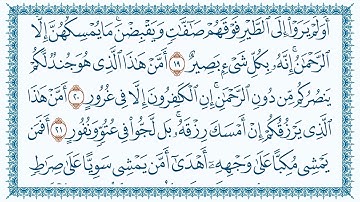 أَوَلَمْ يَرَوْا۟ إِلَى ٱلطَّيْرِ فَوْقَهُمْ صَـٰٓفَّـٰتٍ وَيَقْبِضْنَ ۚ مَا يُمْسِكُهُنَّ إِلَّا
ٱلرَّحْمَـٰنُ ۚ إِنَّهُۥ بِكُلِّ شَىْءٍۭ بَصِيرٌ ١٩ أَمَّنْ هَـٰذَا ٱلَّذِى هُوَ جُندٌ لَّكُمْ
يَنصُرُكُم مِّن دُونِ ٱلرَّحْمَـٰنِ ۚ إِنِ ٱلْكَـٰفِرُونَ إِلَّا فِى غُرُورٍ ٢٠ أَمَّنْ هَـٰذَا
ٱلَّذِى يَرْزُقُكُمْ إِنْ أَمْسَكَ رِزْقَهُۥ ۚ بَل لَّجُّوا۟ فِى عُتُوٍّ وَنُفُورٍ ٢١ أَفَمَن
يَمْشِى مُكِبًّا عَلَىٰ وَجْهِهِۦٓ أَهْدَىٰٓ أَمَّن يَمْشِى سَوِيًّا عَلَىٰ صِرَٰطٍ